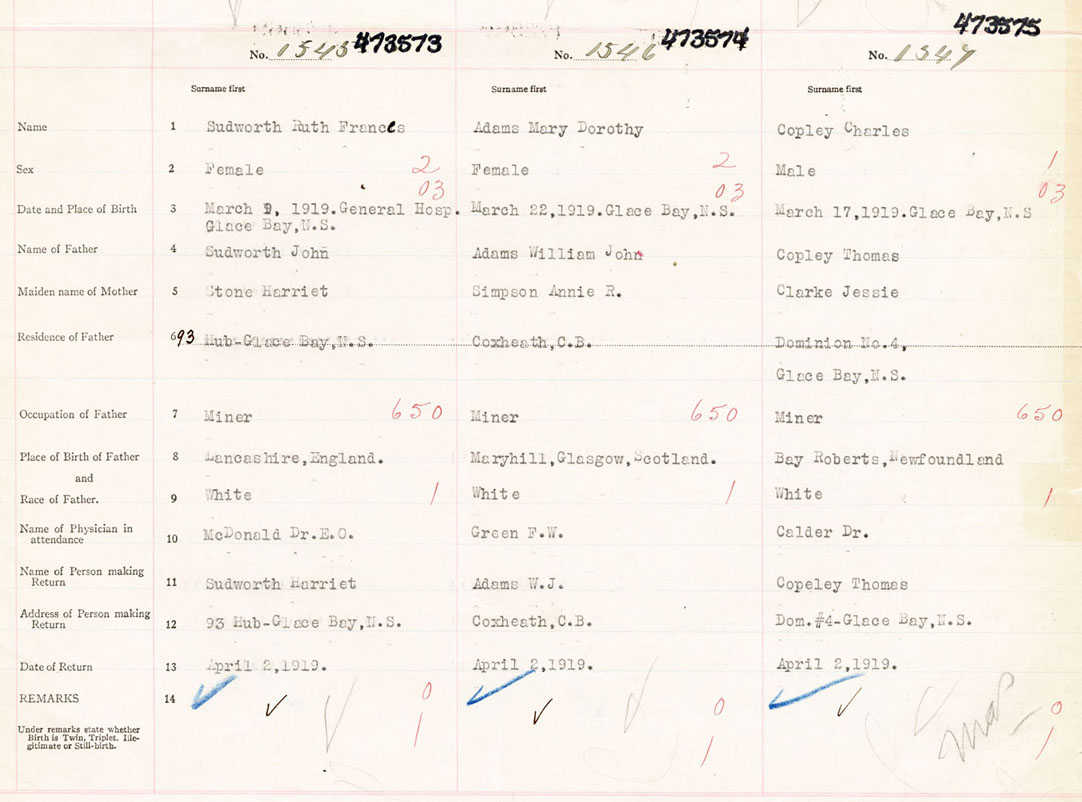 473573 473574 473575
No. 1545 No. 1546 No. 1547
Surname first Surname first Surname first
Name 1 Sudworth Ruth Frances Adams Mary Dorothy Copley Charles
Sex 2 Female 2 Female 2 Male 1
03 03 03
Date and Place of Birth 3 March 9, 1919.General Hosp. March 22,1919.Glace Bay,N.S. March 17,1919.Glace Bay,N.S
Glace Bay,N.S.
Name of Father 4 Sudworth John Adams William John Copley Thomas
Maiden name of Mother 5 Stone Harriet Simpson Annie R. Clarke Jessie
Residence of Father 6 93 Hub-Glace Bay,N.S. Coxheath,C.B. Dominion No.4,
Glace Bay,N.S.
Occupation of Father 7 Miner 650 Miner 650 Miner 650
Place of Birth of Father 8 Lancashire,England. Maryhill,Glasgow,Scotland. Bay Roberts,Newfoundland
and
Race of Father. 9 White 1 White 1 White 1
Name of Physician in
attendance 10 McDonald Dr.E.O. Green F.W. Calder Dr.
Name of Person making
Return 11 Sudworth Harriet Adams W.J. Copeley Thomas
Address of Person making
Return 12 93 Hub-Glace Bay,N.S. Coxheath,C.B. Dom.#4-Glace Bay,N.S.
Date of Return 13 April 2,1919. April 2,1919. April 2,1919.
REMARKS 14 0 0 0
1 1 1
Under remarks state whether
Birth is Twin, Triplet, Ille-
gitimate or Still-birth.